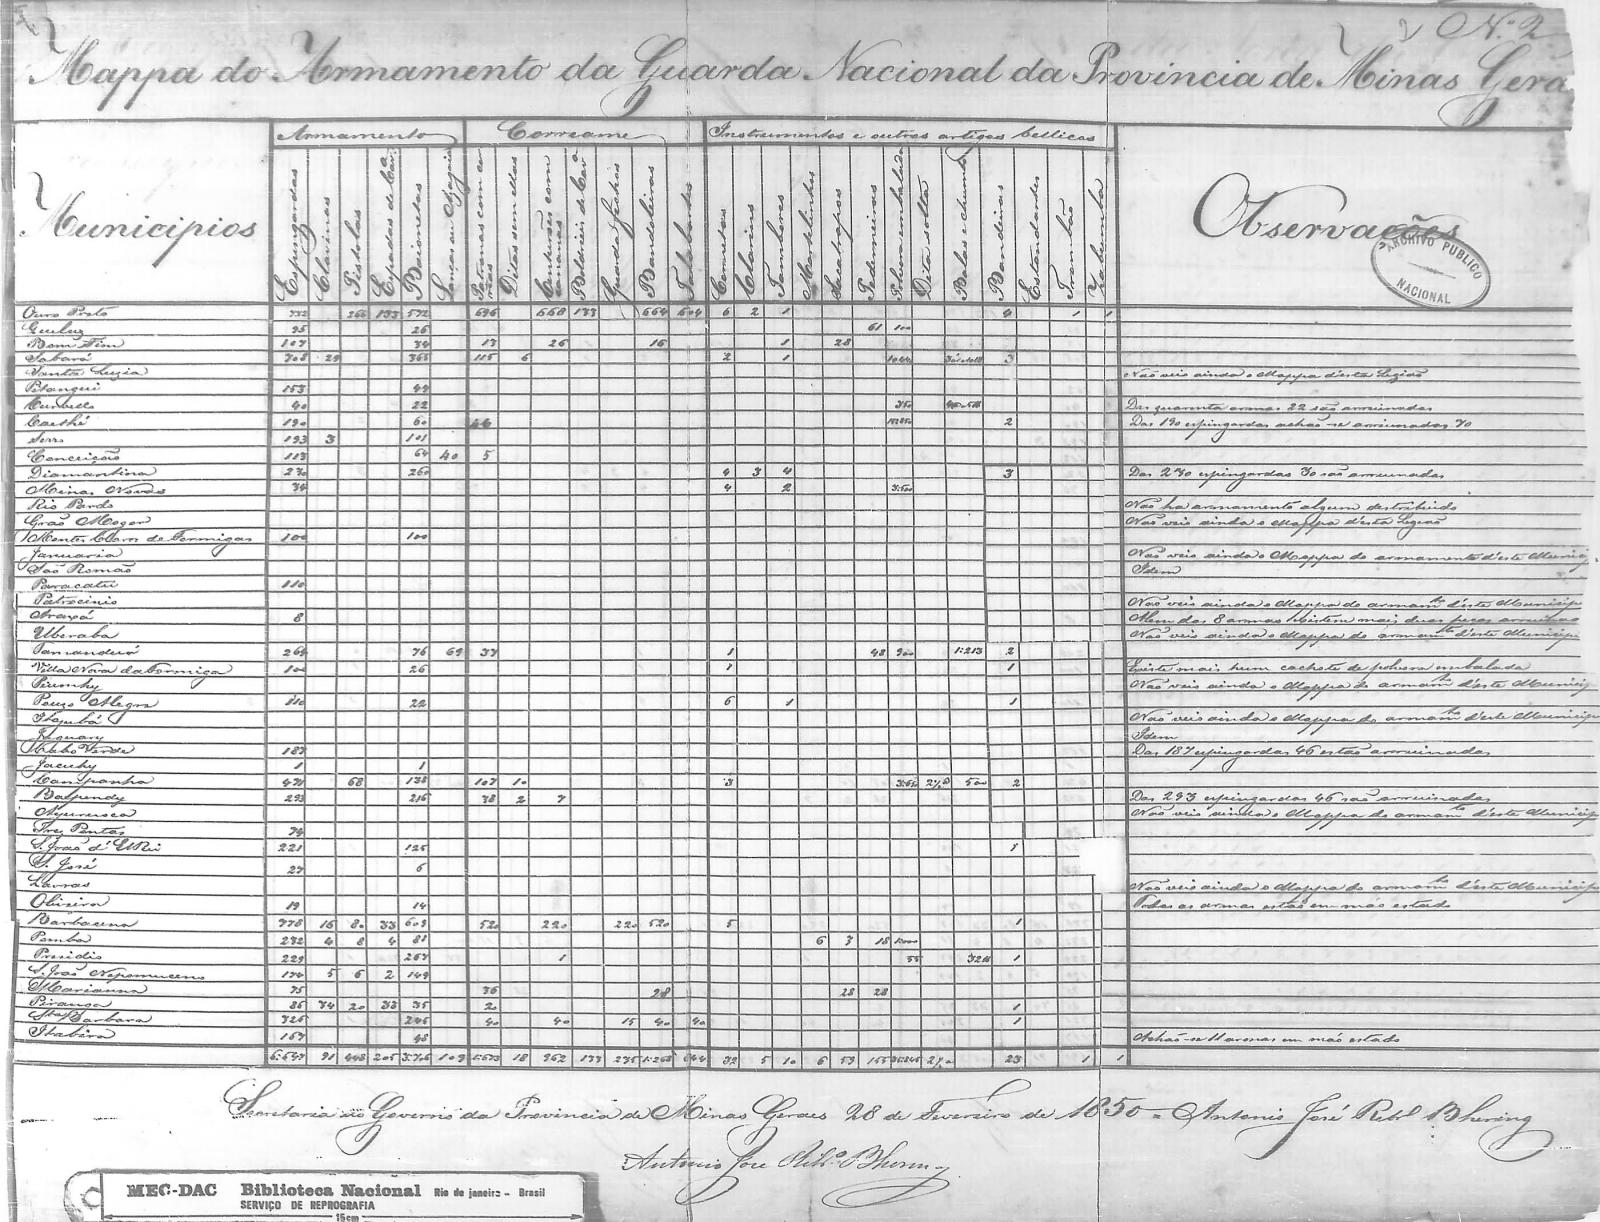 Nº 2
Mappa do Armamento da Guarda Nacional da Provincia de Minas Gera
Municipios
Armamento
Correame
Instrumentos e outros artigos bellicos
Observações
Espingardas
Clavinas
Pistolas
Espadas de Cavª
Baionetas
Ditas sem ellas
Bandoleiras
Talabartes
Cornetas
Clarins
Tambores
Sacatrapos
Pederneiras
Polvora embalada
Dita solta
Balas e chumbo
Bandeiras
Estandartes
Trombão
Zabumba
ARCHIVO PUBLICO NACIONAL
Ouro Preto 266 133 572 696 668 133 664 604 6 2 1 4 1 1
Queluz 95 26 61 100
Bom Fim 107 34 13 26 16 1 28
Sabará 708 29 365 115 6 2 1 3
Santa Luzia Não veio ainda o Mappa d'esta Legião
Pitangui 153 49
Curvello 40 22 350 Das quarenta armas 22 são arruinadas
Caethé 190 60 2 Das 190 espingardas achão-se arruinadas 70
Serro 193 3 101
Conceição 113 64 40 5
Diamantina 270 260 4 3 4 3 Das 270 espingardas 30 são arruinadas
Minas Novas 34 4 2
Rio Pardo Não ha armamento algum destribuido
Grão Mogor Não veio ainda o Mappa d'esta Legião
Montes Claros de Formigas 100 100
Januaria Não veio ainda o Mappa do armamento d'este Munici
São Romão Idem
Paracatú 110
Patrocinio Não veio ainda o Mappa do armamto d'este Municip
Araxá 8 Alem das 8 armas existem mais duas peças arruinadas
Uberaba Não veio ainda o Mappa do armamto d'este Municip
Tamanduá 264 76 69 37 1 48 900 1:213 2
Villa Nova da Formiga 100 26 1 1 Existe mais hum cachote de polvora embalada
Piumhy Não veio ainda o Mappa do armamto d'este Municip
Pouso Alegre 110 22 6 1 1
Itajubá Não veio ainda o Mappa do armamto d'este Municip
Jaguary Idem
Cabo Verde 187 Das 187 espingardas 46 estão arruinadas
Jacuhy 1 1
Campanha 471 68 138 107 10 3 500 2
Baependy 293 216 38 2 7 Das 293 espingardas 46 são arruinadas
Ayuruoca Não veio ainda o Mappa do armamto d'este Municip
Tres Pontas 74
S. João d'El Rei 221 125 1
S. José 27 6
Lavras Não veio ainda o Mappa do armamto d'este Municip
Oliveira 19 14 Todas as armas estão em máo estado
Barbacena 778 16 80 33 603 520 220 220 520 5 1
Pomba 232 4 8 4 81 6 3 18
Presidio 229 267 1 55 1
S. João Nepomuceno 174 5 6 2 149
Marianna 75 36 28 28 28
Piranga 86 34 20 33 35 20 1
Sta Barbara 326 246 40 40 15 40 40 1
Itabira 167 48 Achão-se 11 armas em máo estado
6:647 91 448 205 109 18 962 133 235 644 32 5 10 6 59 155 23 1 1
Secretaria do Governo da Provincia de Minas Geraes 28 de Fevereiro de 1850 = Antonio José Ribº Bhering
Antonio José Ribº Bhering
MEC-DAC Biblioteca Nacional Rio de janeiro - Brasil
SERVIÇO DE REPROGRAFIA
15cm